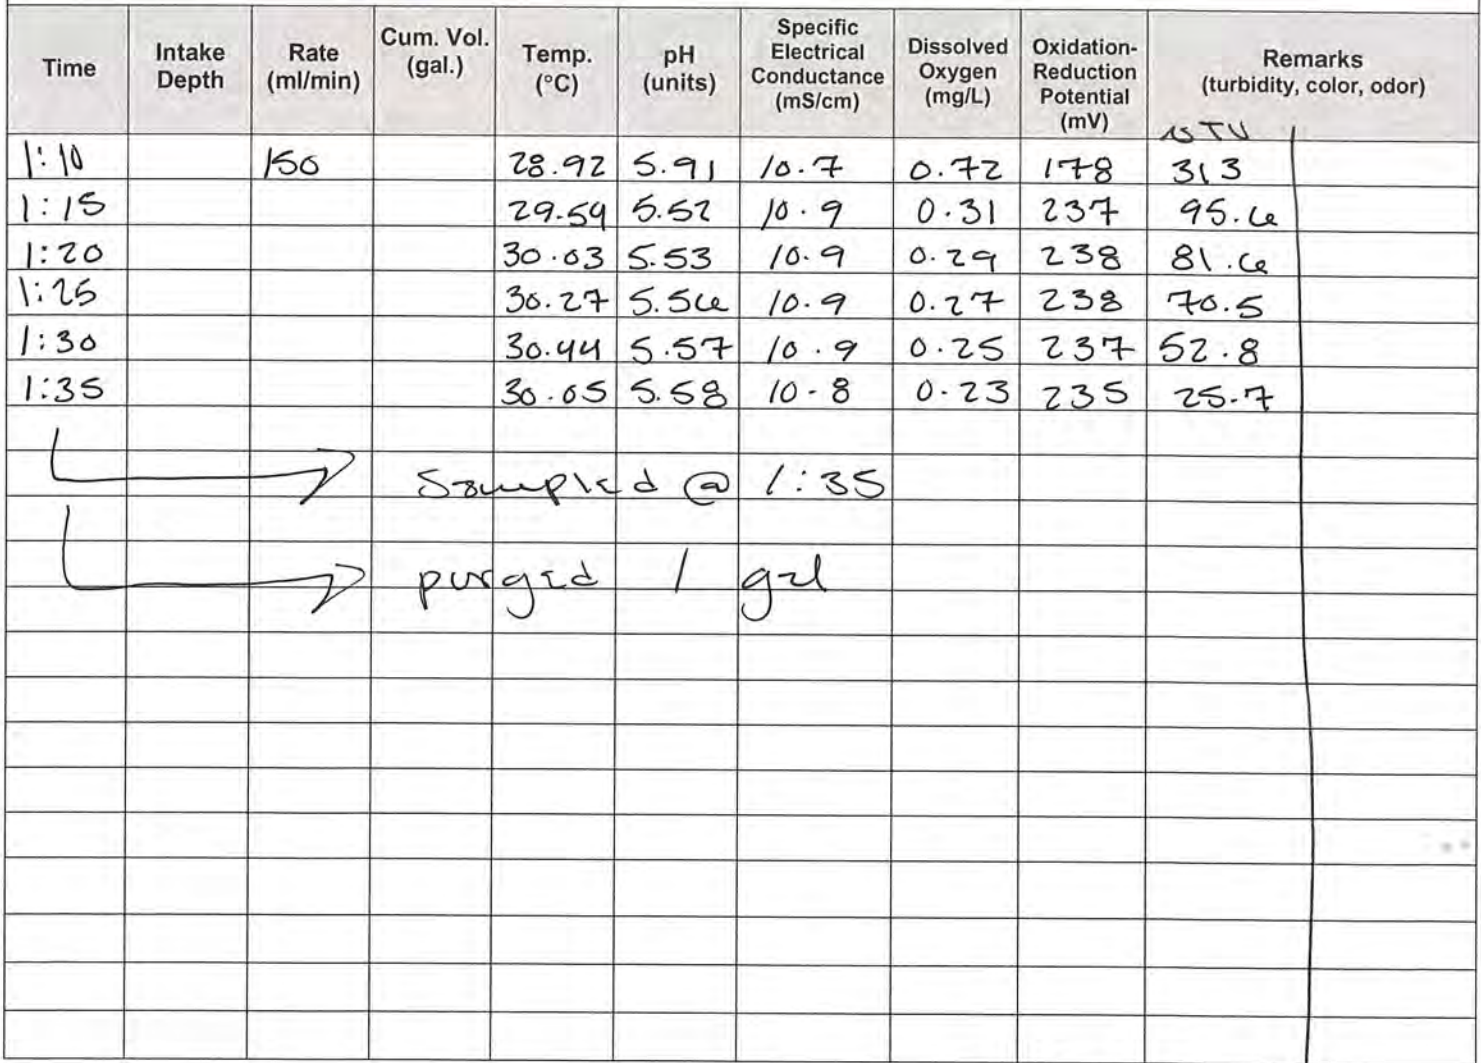 Time Intake Depth Rate (ml/min) Cum. Vol. (gal.) Temp. (°C) pH (units) Specific Electrical Conductance (mS/cm) Dissolved Oxygen (mg/L) Oxidation-Reduction Potential (mV) Remarks (turbidity, color, odor)
NTU
1:10 150 28.92 5.91 10.7 0.72 178 313
1:15 29.59 5.52 10.9 0.31 237 95.6
1:20 30.03 5.53 10.9 0.29 238 81.6
1:25 30.27 5.56 10.9 0.27 238 70.5
1:30 30.44 5.57 10.9 0.25 237 52.8
1:35 30.05 5.58 10.8 0.23 235 25.7
Sampled @ 1:35
purged 1 gal